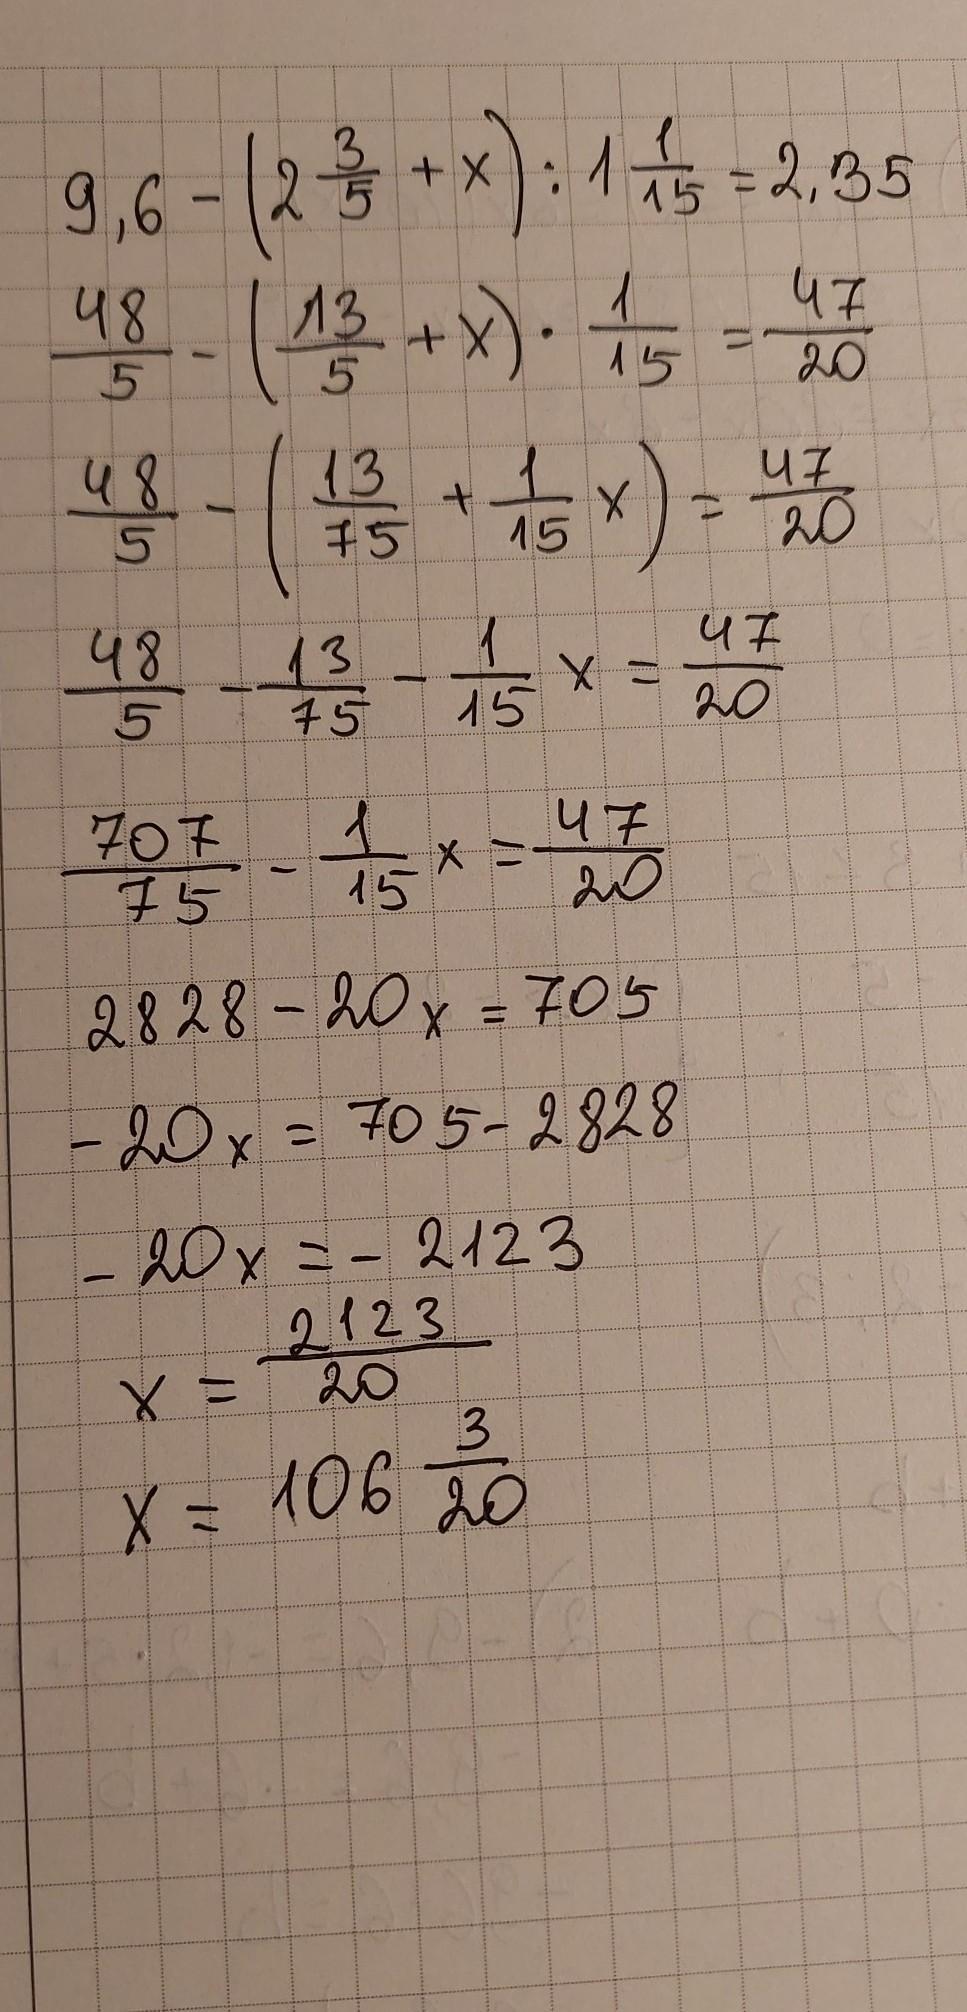 9,6 - (2 3/5 + x) : 1 1/15 = 2,35
48/5 - (13/5 + x) · 1/15 = 47/20
48/5 - (13/75 + 1/15 x) = 47/20
48/5 - 13/75 - 1/15 x = 47/20
707/75 - 1/15 x = 47/20
2828 - 20x = 705
- 20x = 705 - 2828
- 20x = - 2123
x = 2123/20
x = 106 3/20